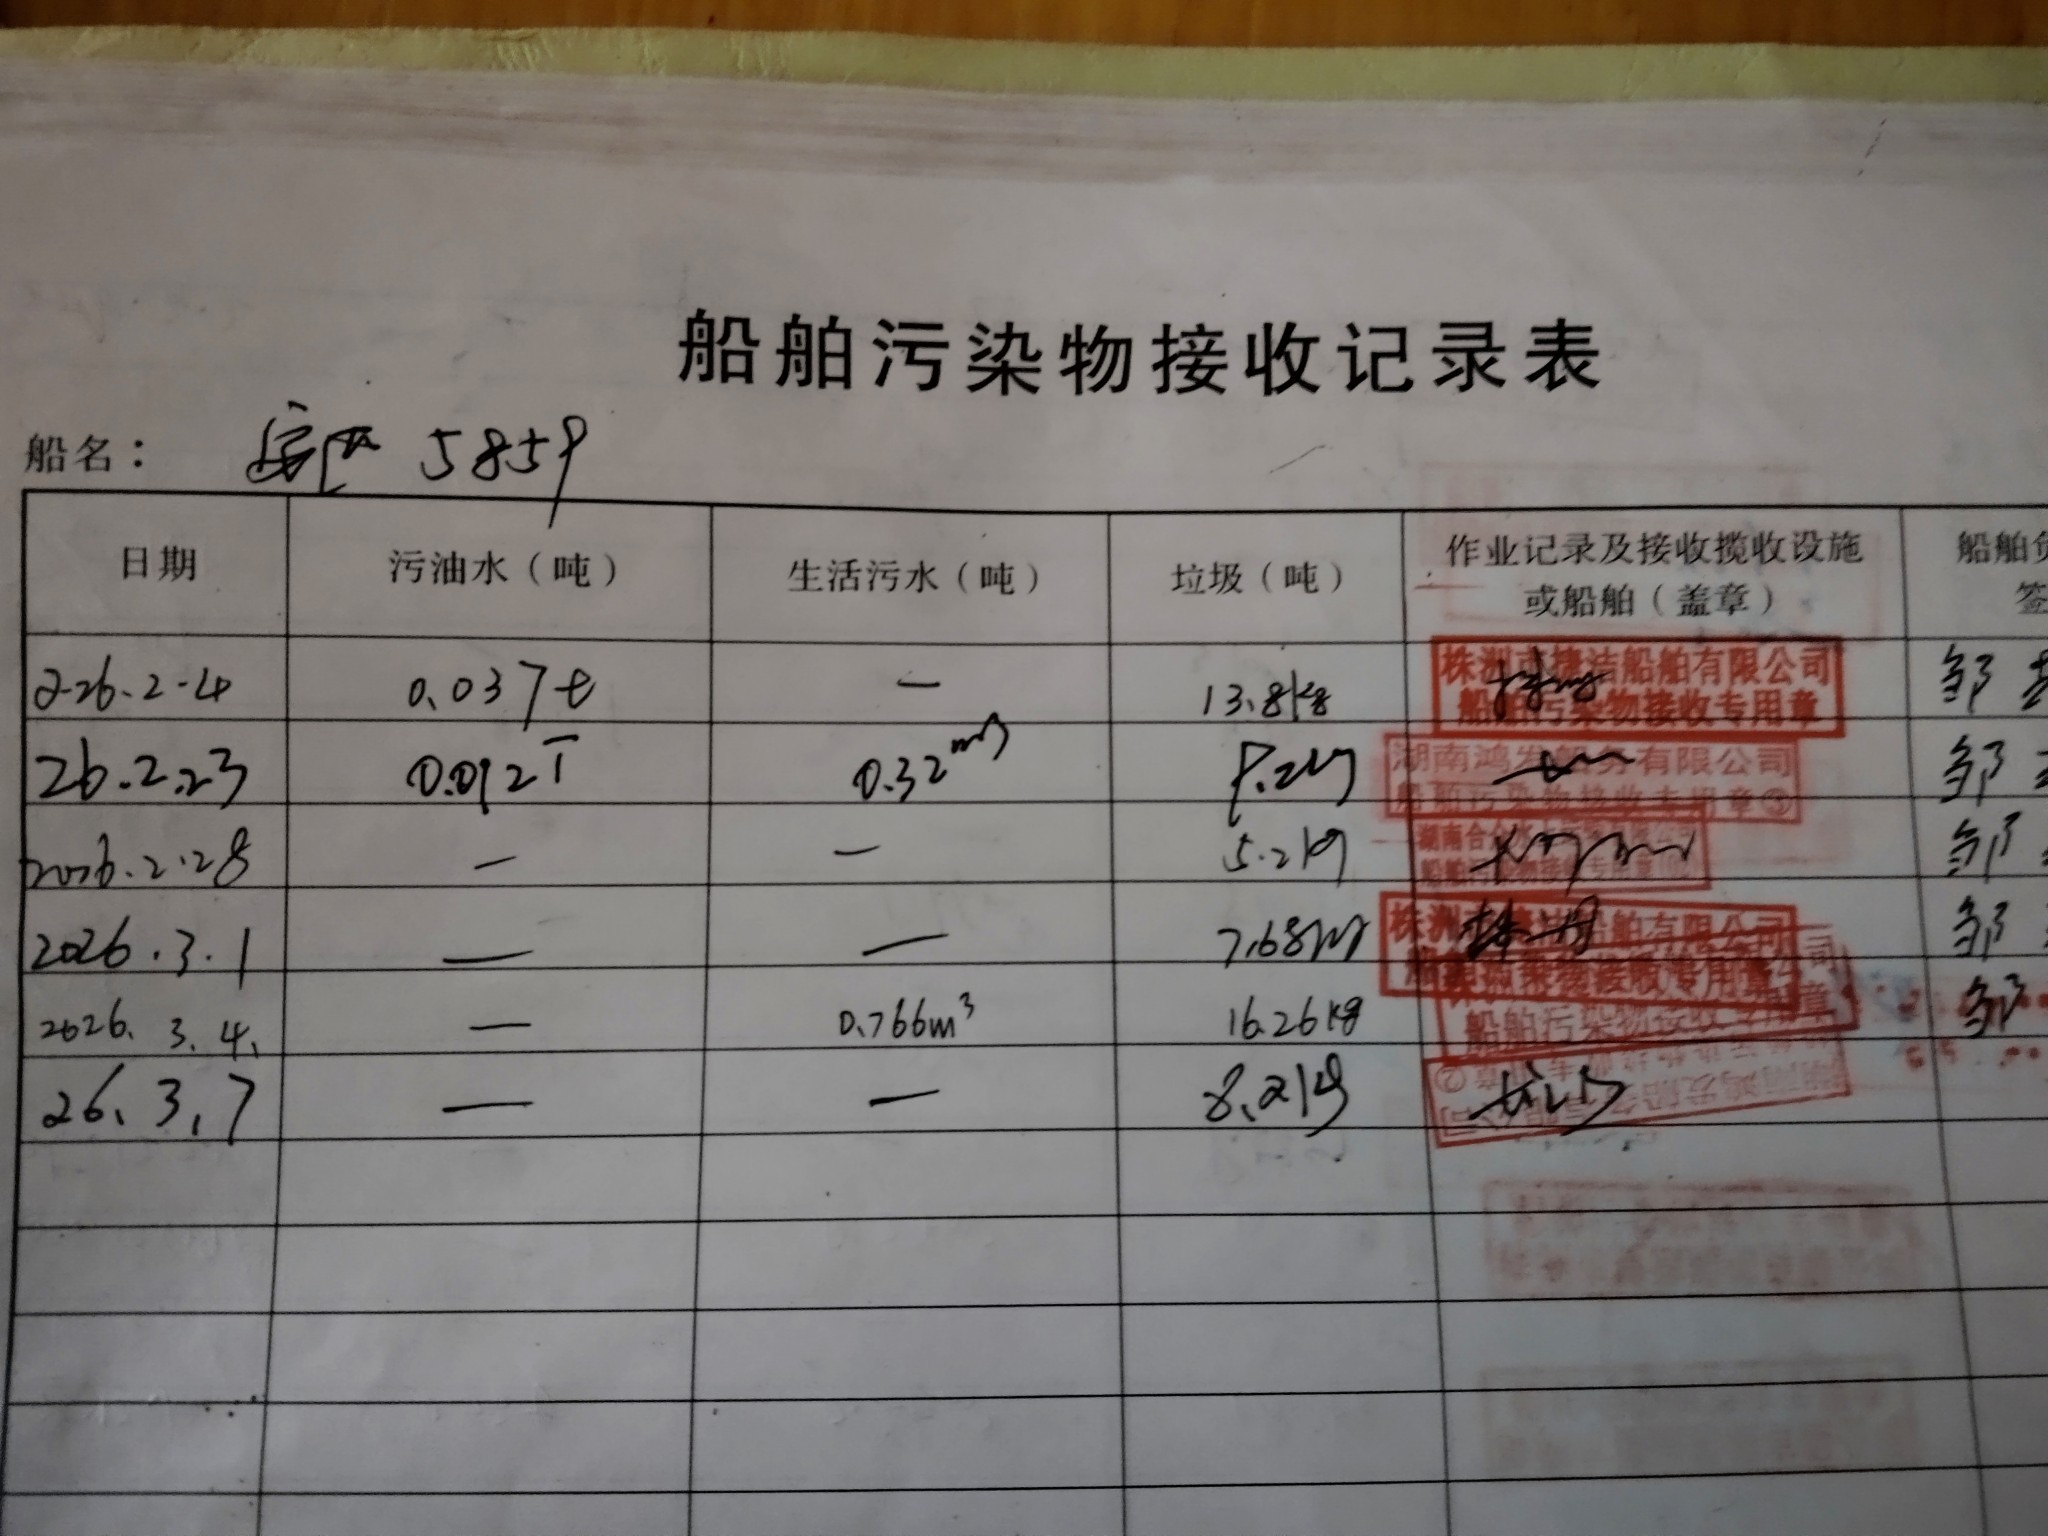 船舶污染物接收记录表
船名： 5859
日期 污油水（吨） 生活污水（吨） 垃圾（吨） 作业记录及接收揽收设施 船舶
或船舶（盖章） 签
26.2.4 0.037t — 13.8kg 株洲市捷洁船舶有限公司 邹
船舶污染物接收专用章
26.2.23 0.012T 0.32m3 湖南鸿发船务有限公司 邹
船舶污染物接收专用章
2026.2.28 — — 5.2kg 湖南 邹
船舶污染物接收专用章
2026.3.1 — — 7.68 株洲 船舶有限公司 邹
接收专用章
2026.3.4. — 0.766m³ 16.26kg 邹
船舶污染物接收专用章
26.3.7 — — 8.2kg